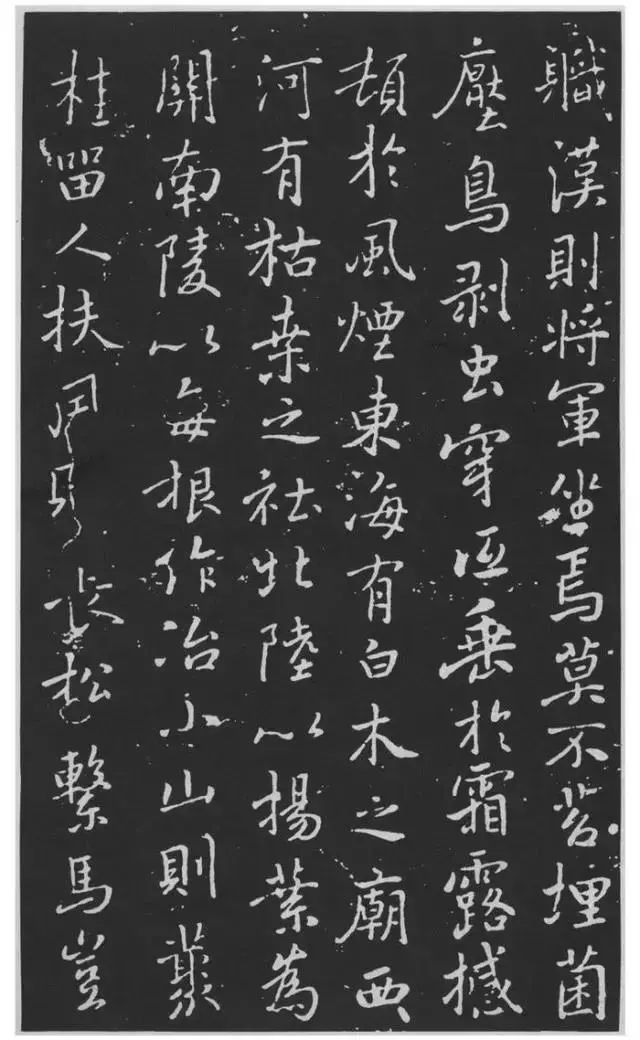 職漢則將軍坐焉莫不苔埋菌
壓鳥剝虫穿低垂於霜露撼
頓於風煙東海有白木之廟西
河有枯桒之社北陸以揚葉為
關南陵以每根作冶小山則叢
桂留人扶風則長松繫馬豈